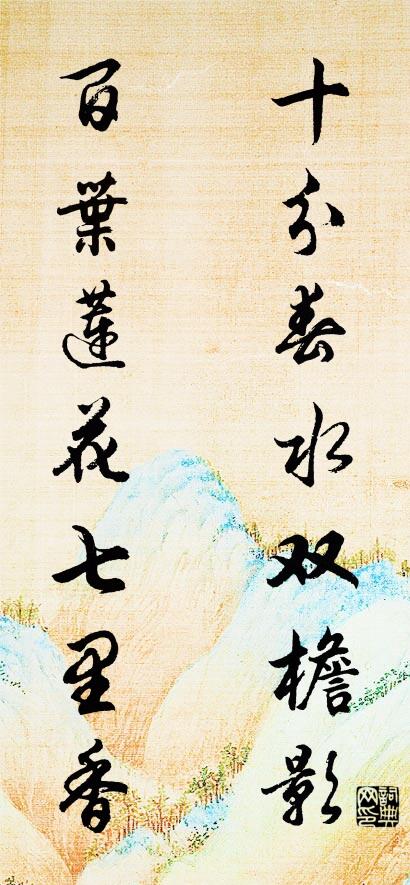 十分春水双檐影
百葉蓮花七里香
詞典網